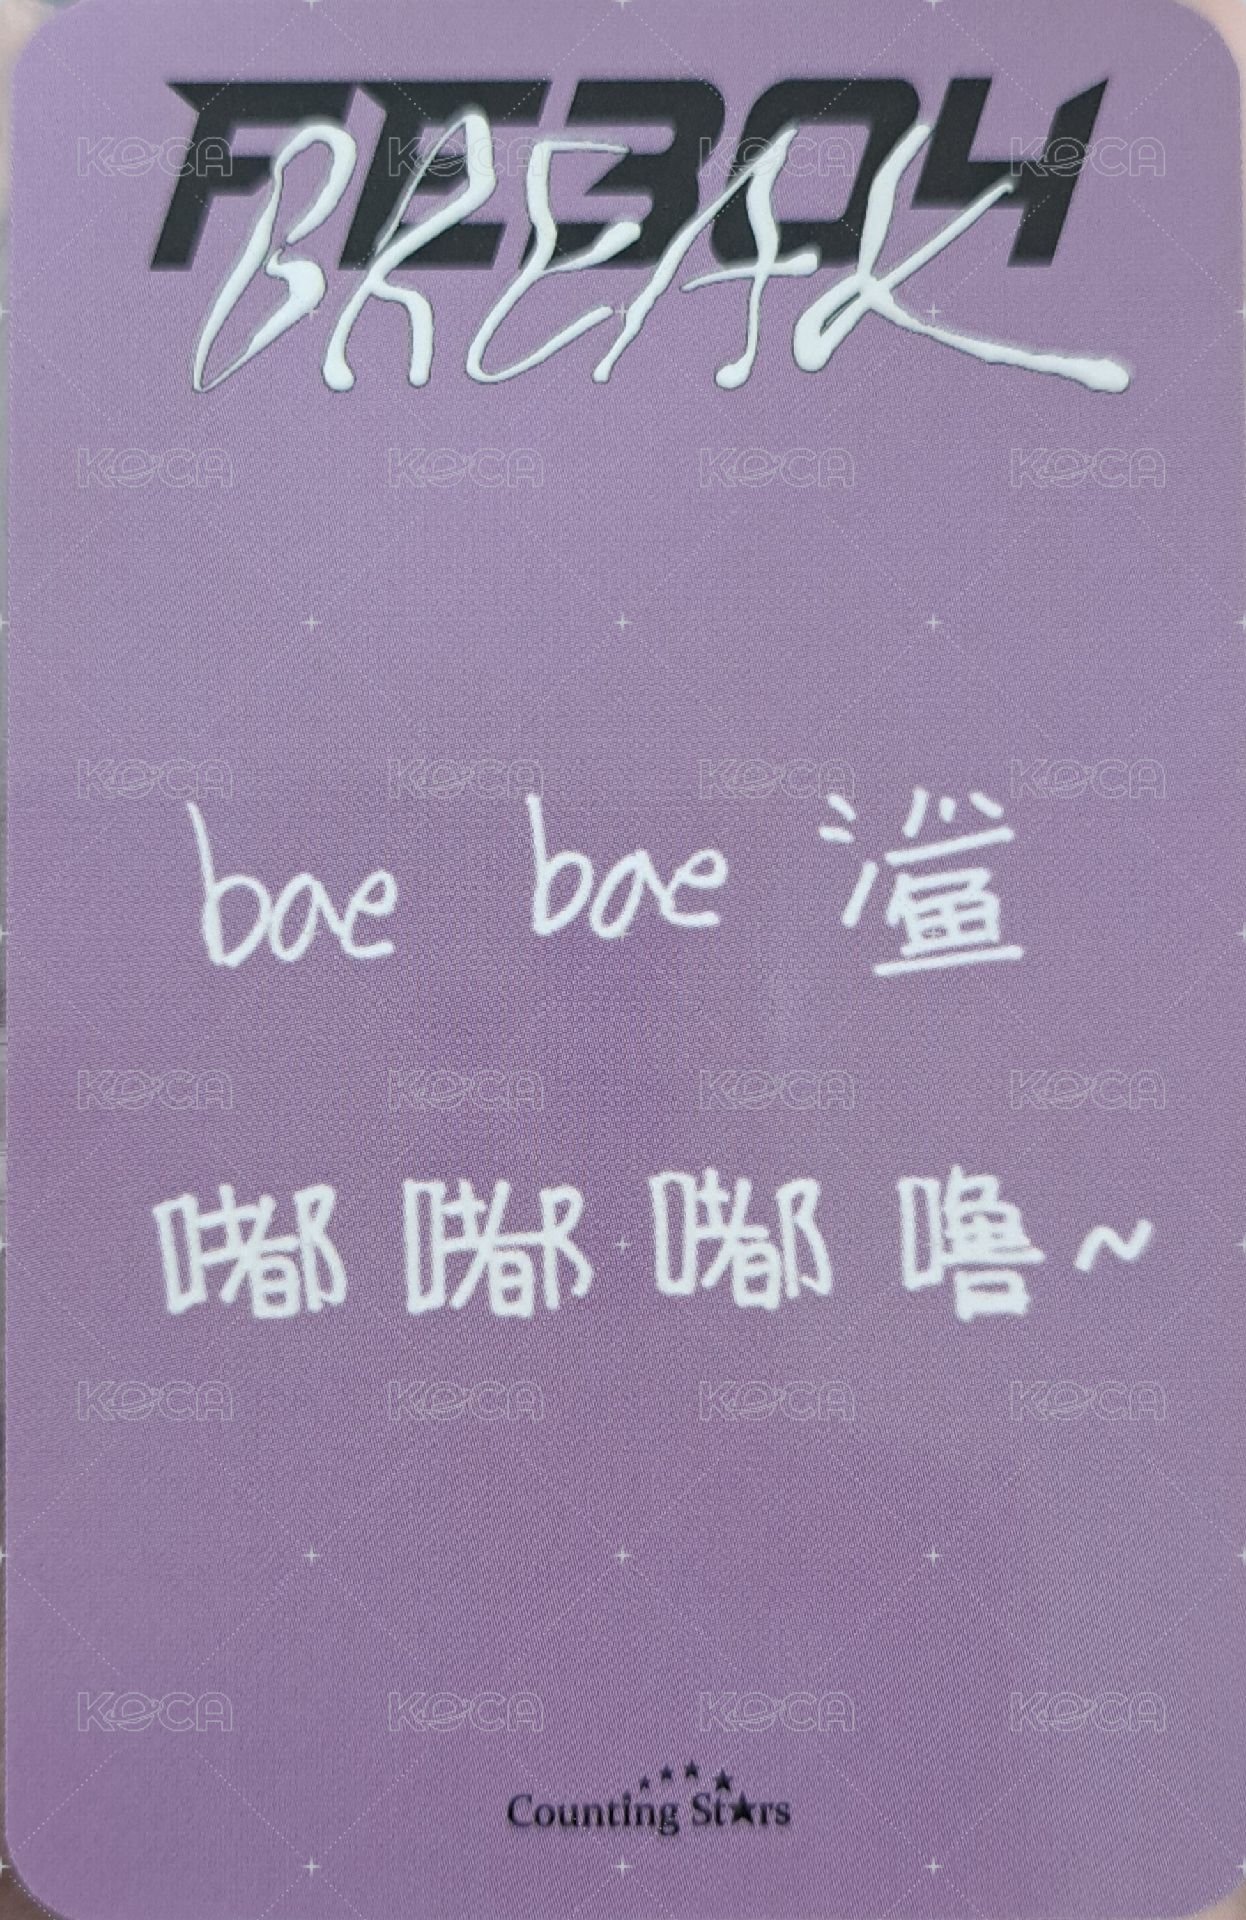 FE3O4
BREAK
KOCA KOCA KOCA KOCA
KOCA KOCA KOCA KOCA
KOCA KOCA KOCA KOCA
bae bae 鲨
KOCA KOCA KOCA KOCA
嘟 嘟 嘟 噜~
KOCA KOCA KOCA KOCA
KOCA KOCA KOCA KOCA
Counting Stars